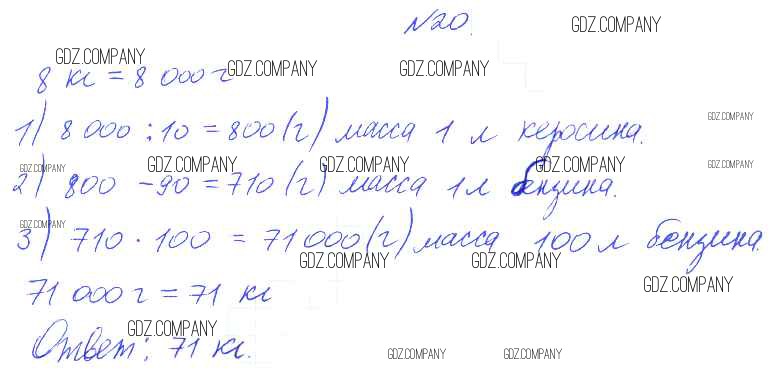 №20.
GDZ.COMPANY
GDZ.COMPANY
GDZ.COMPANY GDZ.COMPANY
8 кг = 8 000 г
GDZ.COMPANY
1) 8 000 : 10 = 800 (г) масса 1 л керосина.
GDZ.COMPANY GDZ.COMPANY GDZ.COMPANY GDZ.COMPANY GDZ.COMPANY
2) 800 - 90 = 710 (г) масса 1 л бензина.
GDZ.COMPANY
3) 710 · 100 = 71 000 (г) масса 100 л бензина.
GDZ.COMPANY GDZ.COMPANY GDZ.COMPANY
71 000 г = 71 кг
GDZ.COMPANY
Ответ: 71 кг.
GDZ.COMPANY GDZ.COMPANY